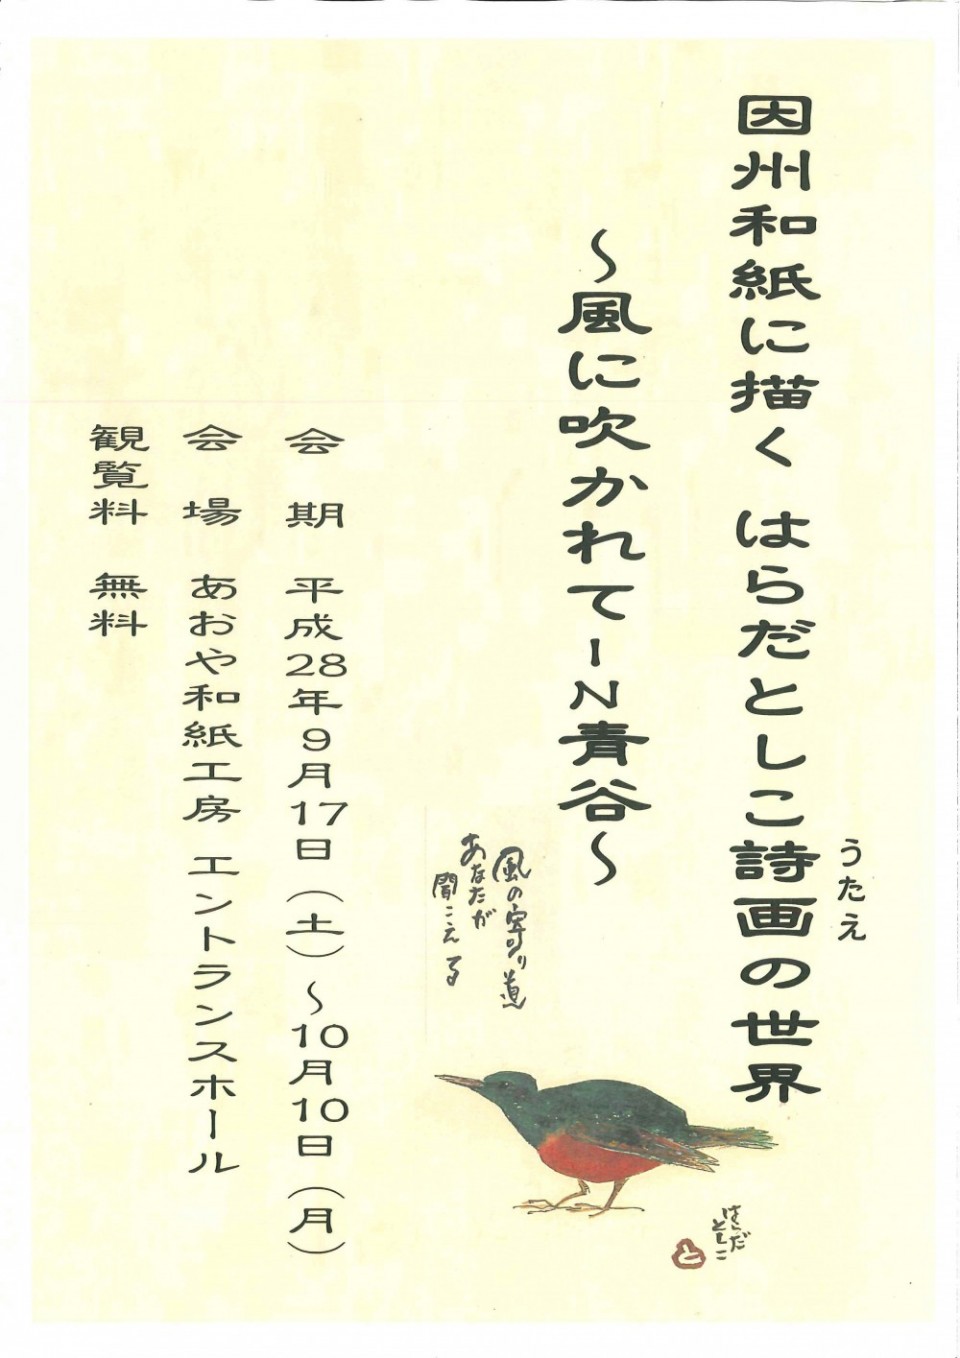 因州和紙に描く はらだとしこ詩画の世界
うたえ
～風に吹かれてIN青谷～
風の寄り道
あなたが
聞こえる
会 期 平成28年9月17日（土）～10月10日（月）
会 場 あおや和紙工房 エントランスホール
観覧料 無料
はらだ
としこ
と